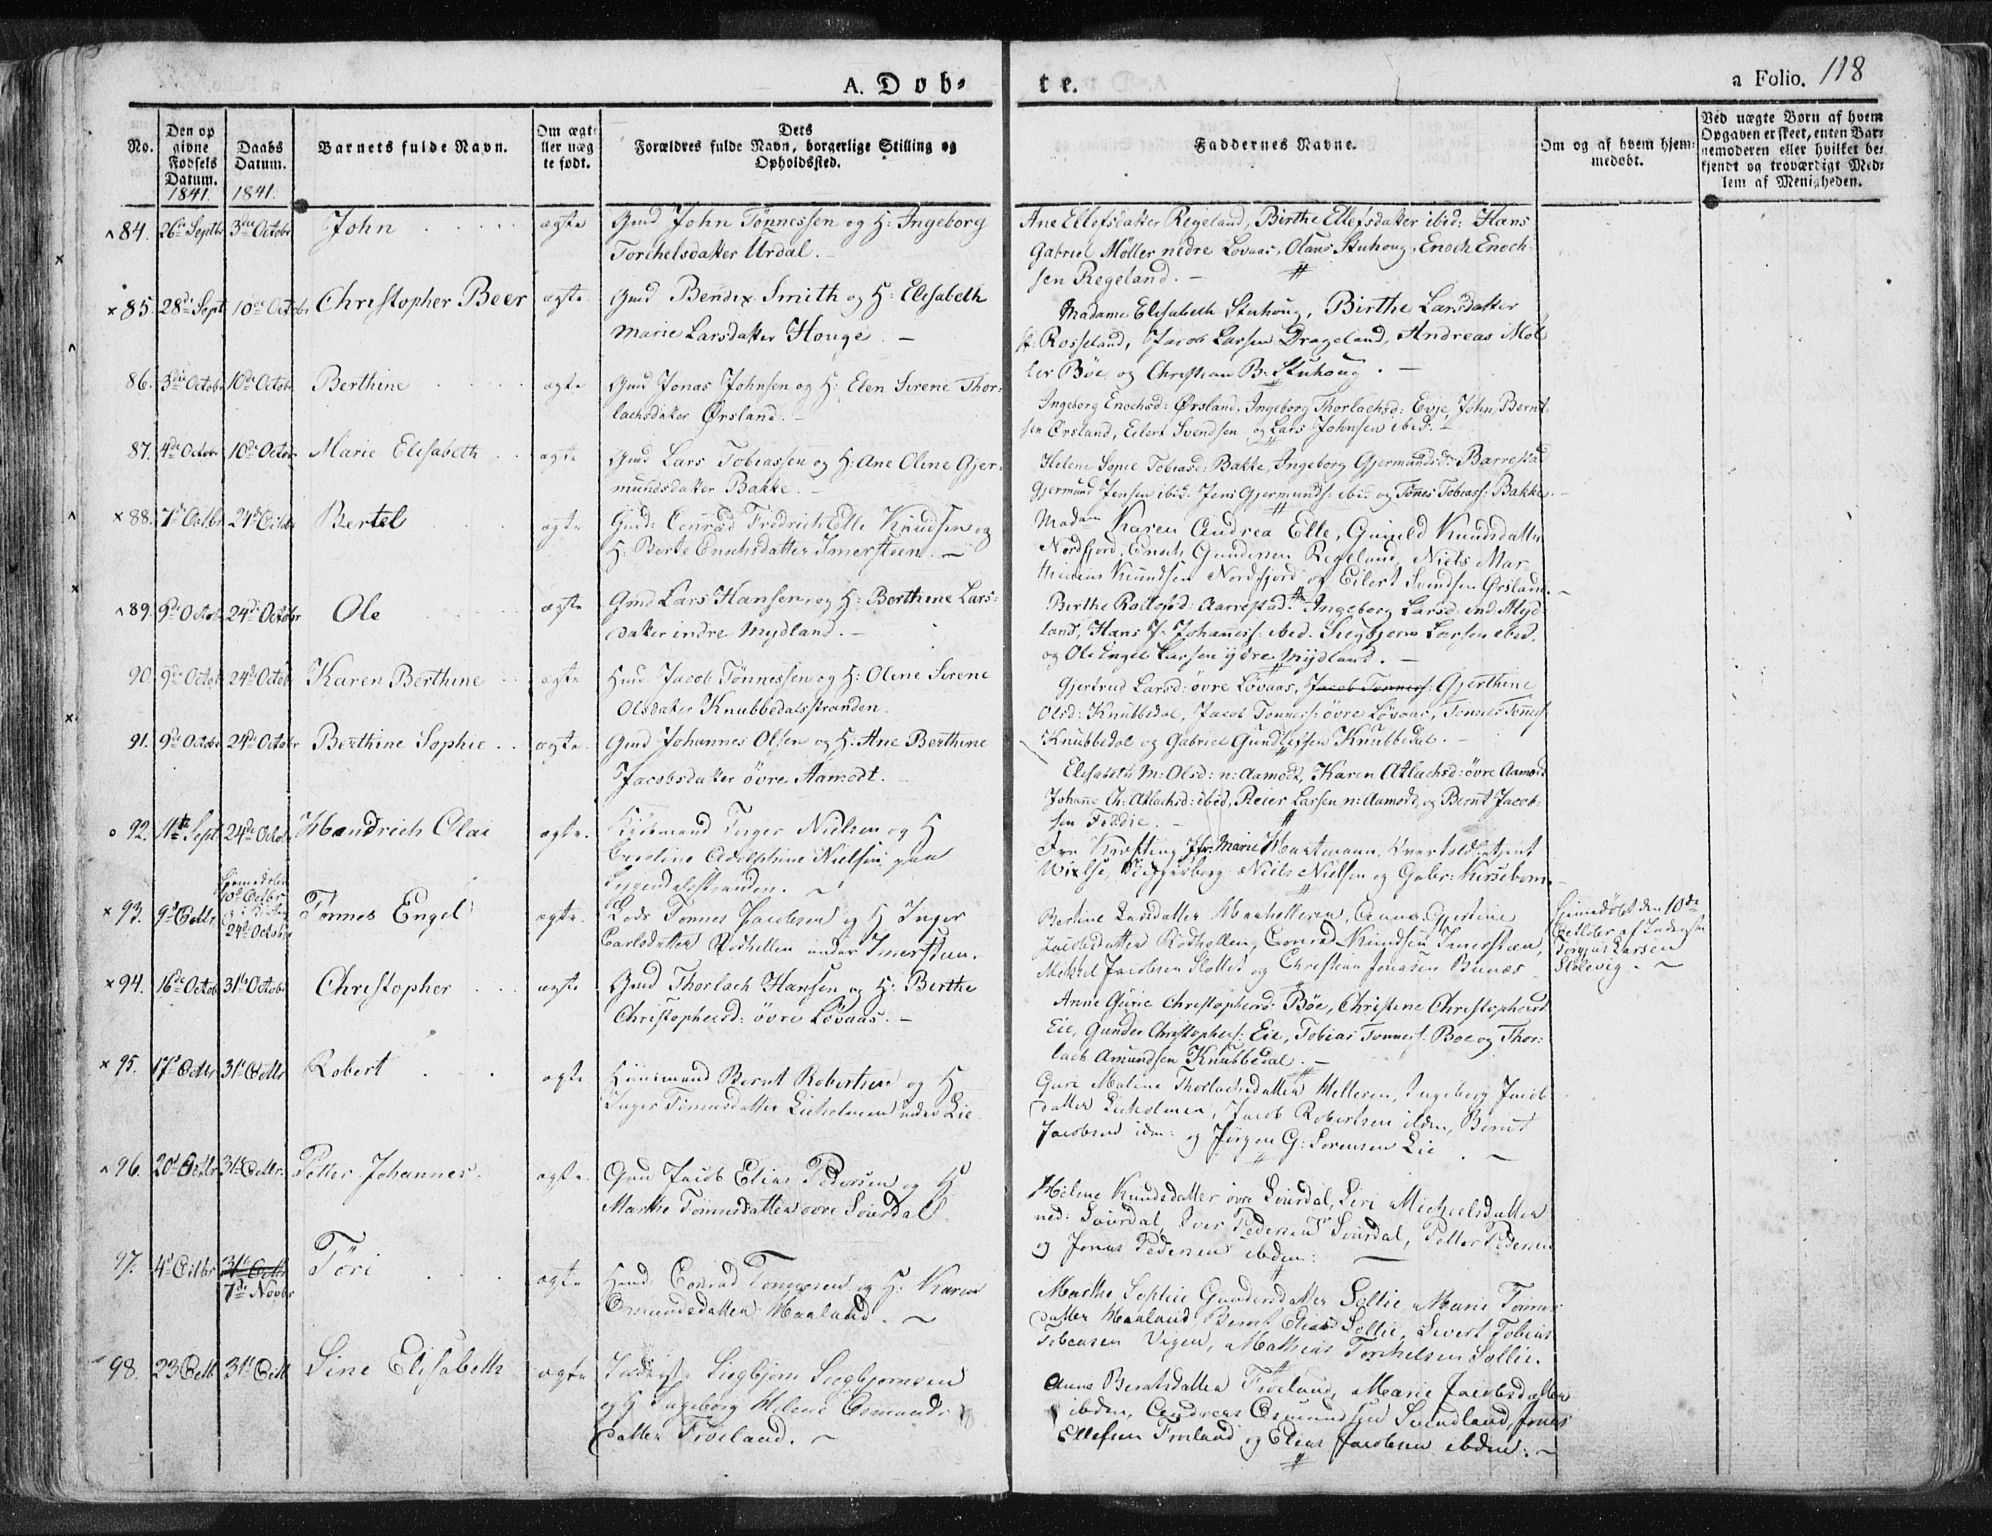 A. Døb-
te.
a Folio. 118
No.
Den op
givne
Fødsels
Datum.
1841.
Daabs
Datum.
1841.
Barnets fulde Navn.
Om ægt-
eller uæg
te født.
Dets
Forældres fulde Navn, borgerlige Stilling og
Opholdssted.
Faddernes Navne.
Om og af hvem hjem-
medøbt.
Ved uægte Børn af hvem
Opgaven er skeet, enten Bar-
nemoderen eller hvilket be-
kjendt og troværdigt Med-
lem af Menigheden.
84. 26de Septbr 3die Octobr John ægte
Gmd John Tønnessen og H: Ingeborg
Torchelsdatter Urdal.
Ane Ellefsdatter Regeland, Birthe Ellefsdatter ibid: Hans
Gabriel Møller nedre Lovaas, Olaus Stuhoug, Enock Enoch-
sen Regeland.
85. 28de Sept 10de Octobr Christopher Beer ægte
Gmd Bendix Smith og H: Elisabeth
Marie Larsdatter Houge.
Madame Elisabeth Stuhoug, Birthe Larsdatter
st: Rosseland, Jacob Larsen Drageland, Andreas Møl
ler Bøe og Christian B. Stuhoug.
86. 3die Octobr 10de Octobr Berthine ægte
Gmd Jonas Johnsen og H: Elen Serene Thor-
lachsdatter Ørsland.
Ingeborg Enochsd: Ørsland, Ingeborg Thorlachsd: Evje, John Bernt-
sen Ørsland, Eilert Svendsen og Lars Johnsen ibid.
87. 4de Octobr 10de Octobr Marie Elisabeth ægte
Gmd Lars Tobiassen og H: Ane Oline Gjer-
mundsdatter Bakke.
Helene Sopie Tobiasd: Bakke, Ingeborg Gjermundsd: Barrestad
Gjermund Jensen ibid. Jens Gjermunds: ibid og Tønes Tobiass: Bakke.
88. 7de Octbr 24de Octbr Bertel ægte
Gmd: Conrad Fredrich Elle Knudsen og
H: Berte Enochsdatter Imersteen.
Madam Karen Andrea Elle, Gunild Knudsdatter
Nordfjord, Enoch Gundersen Regeland, Niels Mar
thinius Knudsen Nordfjord og Eilert Svendsen Ørsland.
89. 9de Octobr 24de Octobr Ole ægte
Gmd Lars Hansen og H: Berthine Lars-
datter indre Mydland.
Birthe Rollefsd: Aarrestad. Ingeborg Larsd: ind: Myd
land, Hans J. Johaness: ibid. Siegbjørn Larsen ibid.
og Ole Engel Larsen ydre Mydland.
90. 9de Octobr 24de Octobr Karen Berthine ægte
Hmd Jacob Tønnessen og H: Oline Serene
Olsdatter Knubbedalsstranden.
Gjertrud Larsd: øvre Løvaas, Jacob Tønness: Gjerthine
Olsd: Knubbedal, Jacob Tønness: øvre Løvaas, Tønnes Tønness:
Knubbedal og Gabriel Gundlefsen Knubbedal.
91. 9de Octobr 24de Octobr Berthine Sophie ægte
Gmd Johannes Olsen og H: Ane Berthine
Jacobsdatter øvre Aamodt.
Elisabeth M: Olsd: n: Aamodt, Karen Atlachsd: øvre Aamodt
Johanne Ch: Atlachsd: ibid, Reier Larsen n: Aamodt, og Bernt Jacob-
sen Fiddie.
92. 11te Sept 24de Octobr Hendrich Olai ægte.
Kjøbmand Torger Nielsen og H
Caroline Adolphine Nielsen paa
Soggendalsstranden.
Fru Krefting Jfr. Marie Hartmann,
Niels Nielsen og Gabr: Kirsebom.
93. 9de Octbr Hjemedøbt
10de Octbr
24de Octobr Tønnes Engel ægte
Lods Tønnes Jacobsen og H Inger
Carlsdatter Rødhellen under Imersteen.
Bertine Larsdatter Anna Gjertine
Jacobsdatter Rødhellen, Conrad Knudsen Imersteen,
Michel Jacobsen Slottet og Christian Jonasen Bunæs
Hjemedøbt den 10de
October af
Torgius Larsen
Stølevig.
94. 16de Octob 31te Octobr Christopher ægte
Gmd Thorlach Hansen og H: Berthe
Christophersd: øvre Løvaas.
Anne Gurie Christophersd: Bøe, Christine Christophersd
Eie, Gunder Christophers: Eie, Tobias Tønness: Boe og Thor-
lach Amundsen Knubbedal.
95. 17de Octbr 31te Octbr Robert ægte
Huusmand Bernt Robertsen og H
Inger Tønnesdatter Lieholmen under Lie.
Guri Malene Thorlachsdatter Helleren, Ingeborg Jacob
datter Lieholmen, Jacob Robertsen ibdm, Bernt
Jacobsen idm: og Jørgen G: Sørensen Lie.
96. 20de Octbr 31te Octbr. Petter Johannes ægte.
Gmd Jacob Elias Pedersen og H
Marthe Tønnesdatter øvre Sourdal.
Helene Knudsdatter øvre Sourdal, Siri Michelsdatter
ned: Sourdal, Iver Pedersen Sourdal, Petter Pedersen
og Jonas Pedersen ibdm:
97. 4de Octbr 31te Octbr
7de Novbr Tøri ægte
Hmd. Conrad Tønnesen og H: Karen
Osmundsdatter Haaland.
Marthe Sophie Gundersdatter Sollie, Marie Tønnes
datter Haaland, Bernt Elias Sollie, Sivert Tobias
Tobiasen Vigen, Mathias Torchelsen Sollie.
98. 23 Octb 31te Octb Sine Elisabeth ægte
Siegbjørn Siegbjørnsen
og H Ingeborg Helene Osmunds
datter Frøeland.
Anna Berntsdatter Frøeland, Marie Jacobsdatter
ibdm, Andreas Osmundsen Svindland, Jonas
Ellefsen Frøeland og Elias Jacobsen ibdm: